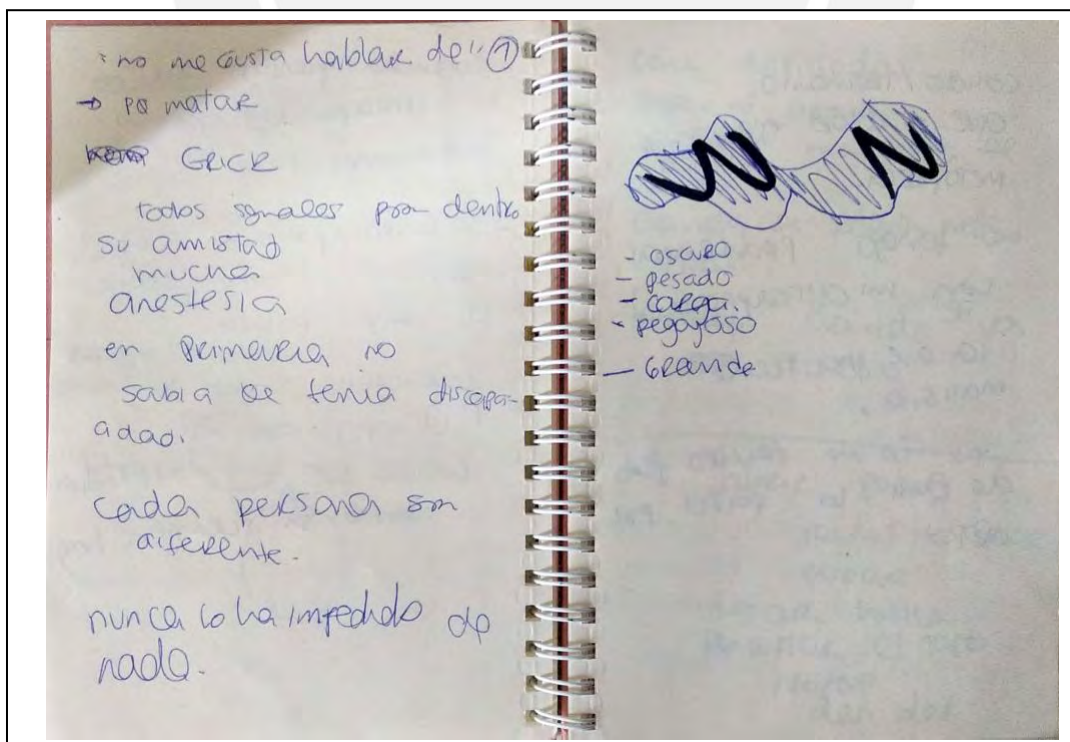 "no me gusta hablar de" ①
→ pa matar
GRICK
todos iguales por dentro
su amistad
mucha
anestesia
en primaria no
sabía qe tenia discapa-
adad.
cada persona son
diferente.
nunca lo ha impedido de
nada.
- oscuro
- pesado
- carga.
- pegajoso
- Grande